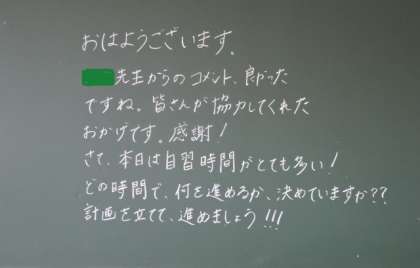 おはようございます。
先生からのコメント、良かった
ですね。皆さんが協力してくれた
おかげです。感謝！
さて、本日は自習時間がとても多い！
どの時間で、何を進めるか、決めていますか??
計画を立てて、進めましょう!!!